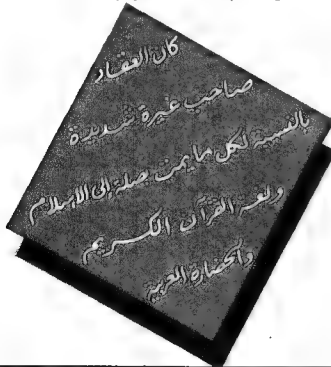 كان العقاد
صاحب غيرة شديدة
بالنسبة لكل ما يمت بصلة إلى الإسلام
ولغة القرآن الكريم
والحضارة العربية